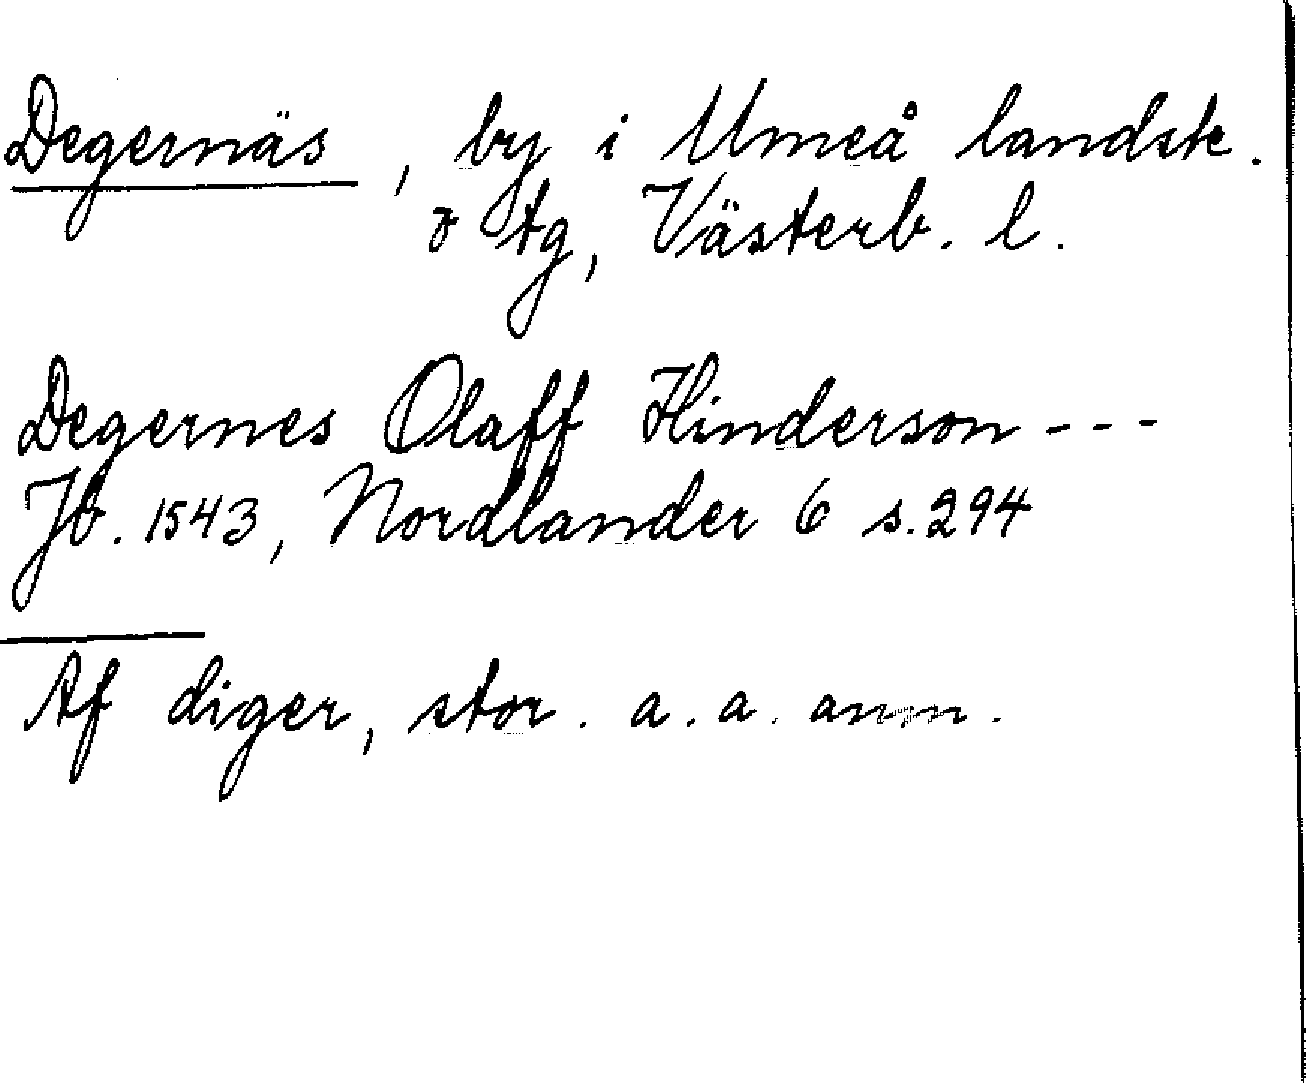 Degernäs, by i Umeå landsk.
o tg, Västerb. l.
Degernes Olaff Hinderson ---
Jb. 1543, Nordlander 6 s. 294
Af diger, stor. a. a. anm.